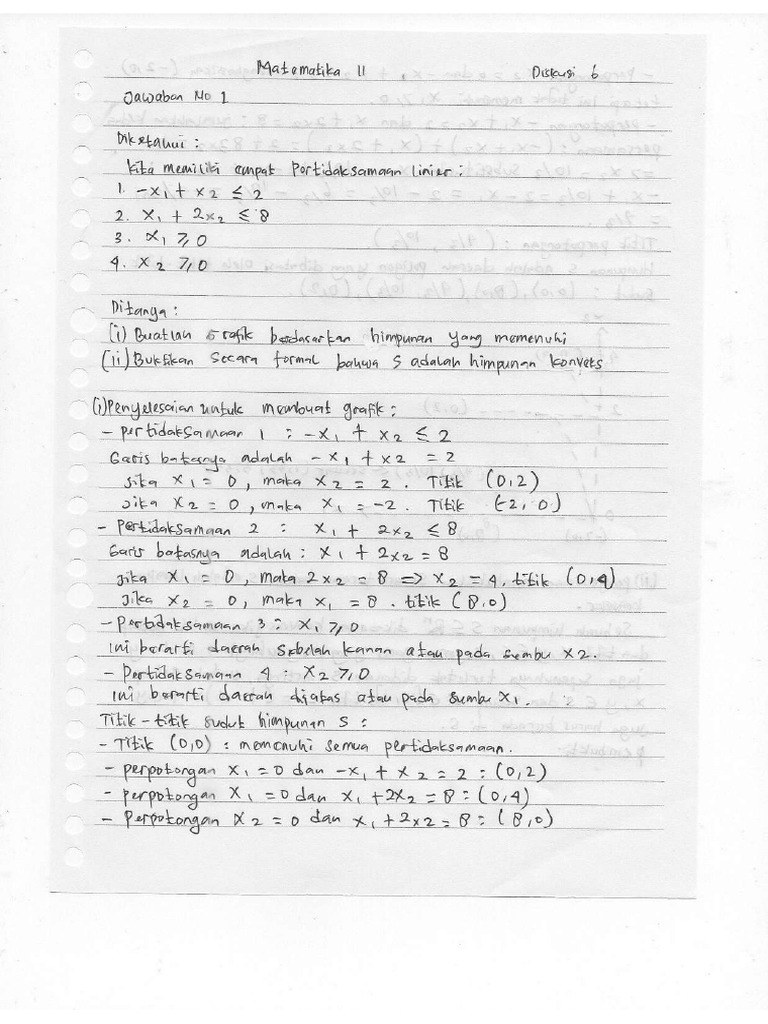 Matematika II Diskusi 6
Jawaban No 1
Diketahui :
kita memiliki empat Pertidaksamaan linier :
1. -x1 + x2 ≤ 2
2. x1 + 2x2 ≤ 8
3. x1 ≥ 0
4. x2 ≥ 0
Ditanya :
(i) Buatlah Grafik berdasarkan himpunan yang memenuhi
(ii) Buktikan Secara formal bahwa S adalah himpunan konveks
(i) Penyelesaian untuk membuat grafik :
- Pertidaksamaan 1 : -x1 + x2 ≤ 2
Garis batasnya adalah -x1 + x2 = 2
Jika x1 = 0, maka x2 = 2. Titik (0,2)
Jika x2 = 0, maka x1 = -2. Titik (-2,0)
- Pertidaksamaan 2 : x1 + 2x2 ≤ 8
Garis batasnya adalah : x1 + 2x2 = 8
Jika x1 = 0, maka 2x2 = 8 => x2 = 4. titik (0,4)
Jika x2 = 0, maka x1 = 8. titik (8,0)
- Pertidaksamaan 3 : x1 ≥ 0
Ini berarti daerah sebelah kanan atau pada sumbu x2.
- Pertidaksamaan 4 : x2 ≥ 0
Ini berarti daerah diatas atau pada sumbu x1.
Titik-titik sudut himpunan S :
- Titik (0,0) : memenuhi semua pertidaksamaan.
- perpotongan x1 = 0 dan -x1 + x2 = 2 : (0,2)
- perpotongan x1 = 0 dan x1 + 2x2 = 8 : (0,4)
- Perpotongan x2 = 0 dan x1 + 2x2 = 8 : (8,0)